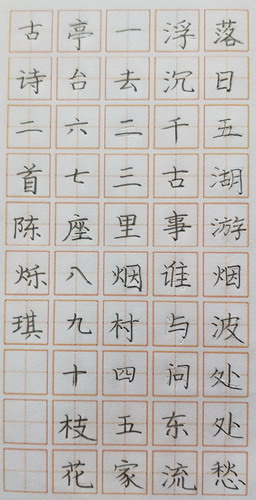 落日五湖游烟波处处愁
浮沉千古事谁与问东流
一去二三里烟村四五家
亭台六七座八九十枝花
古诗二首陈烁琪